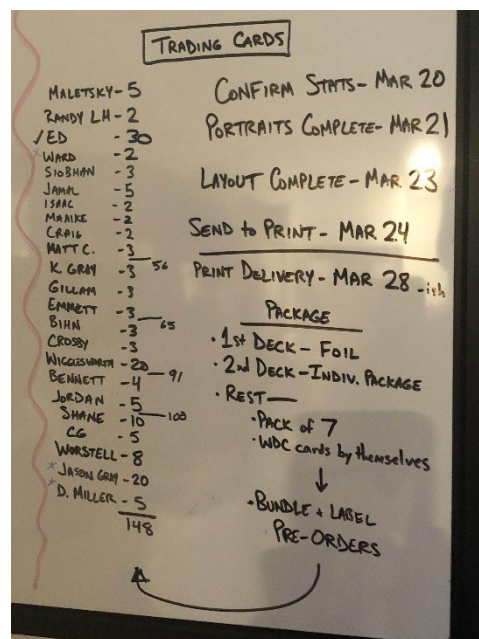 TRADING CARDS
MALETSKY - 5
RANDY LH - 2
✓ ED - 30
x WARD - 2
SIOBHAN - 3
JAMAL - 5
ISAAC - 2
MAAIKE - 2
CRAIG - 2
MATT C. - 3
56
K. GRAY - 3
GILLAM - 3
EMMETT - 3
65
BIHN - 3
CROSBY - 3
WIGGLESWORTH - 20
91
BENNETT - 4
JORDAN - 5
100
SHANE - 10
CG - 5
WORSTELL - 8
x JASON GRAY - 20
x D. MILLER - 5
148
CONFIRM STATS - MAR 20
PORTRAITS COMPLETE - MAR 21
LAYOUT COMPLETE - MAR 23
SEND to PRINT - MAR 24
PRINT DELIVERY - MAR 28 -ish
PACKAGE
• 1st DECK - FOIL
• 2nd DECK - INDIV. PACKAGE
• REST —
• PACK of 7
• WDC cards by themselves
↓
• BUNDLE + LABEL
PRE-ORDERS